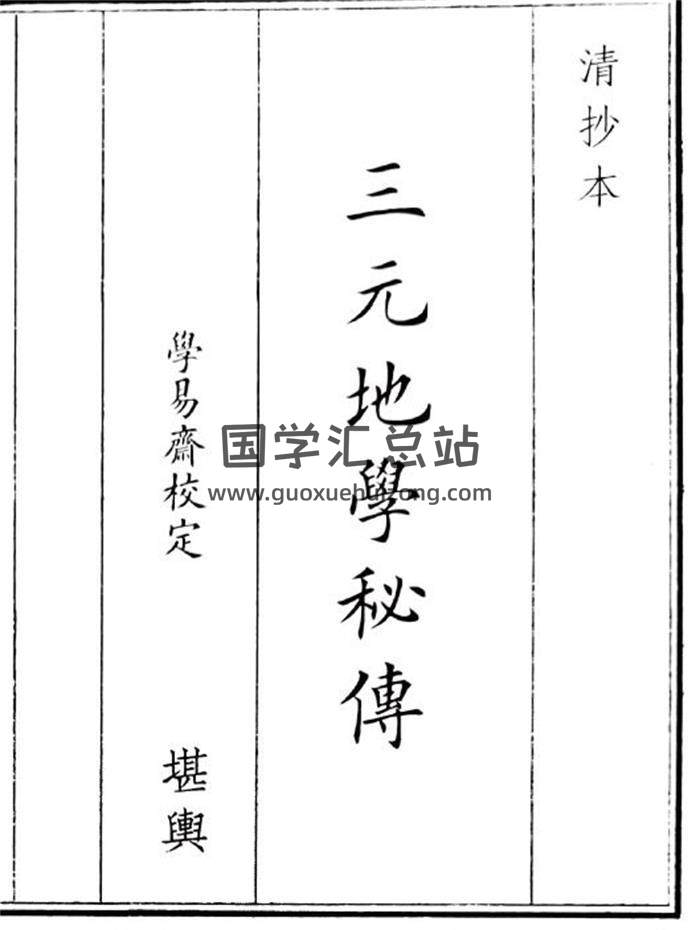 清抄本
三元地學秘傳
學易齋校定
堪輿
国学汇总站
www.guoxuehuizong.com